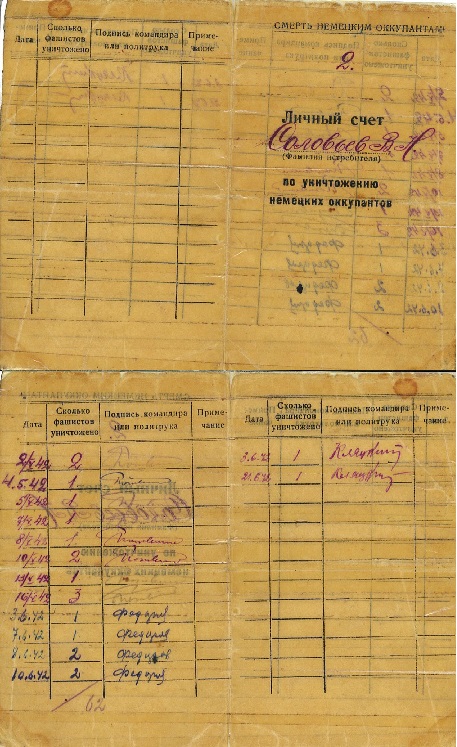 Дата Сколько фашистов уничтожено Подпись командира или политрука Приме-чание
СМЕРТЬ НЕМЕЦКИМ ОККУПАНТАМ
2.
Личный счет
Соловьев В. Н
(Фамилия истребителя)
по уничтожению
немецких оккупантов
Дата Сколько фашистов уничтожено Подпись командира или политрука Приме-чание
2/V 42 2
4.5.42 1
5/V 42 1
7/V 42 1
8/V 42 1
10/V 42 2
1
16/V 42 3
3.6.42 1 Федоров
7.6.42 1 Федоров
8.6.42 2 Федоров
10.6.42 2 Федоров
Дата Сколько фашистов уничтожено Подпись командира или политрука Приме-чание
3.6.42 1
21.6.42 1